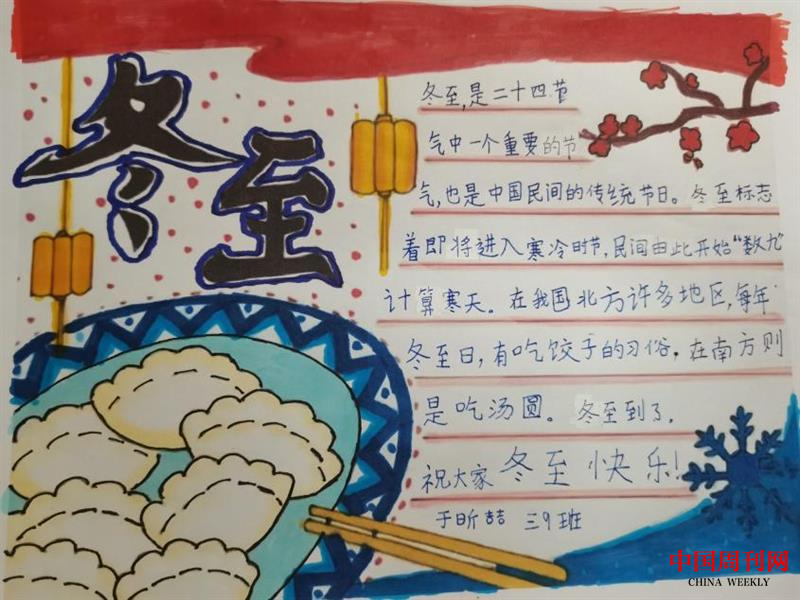 冬至
冬至,是二十四节
气中一个重要的节
气,也是中国民间的传统节日。冬至标志
着即将进入寒冷时节,民间由此开始“数九”
计算寒天。在我国北方许多地区,每年
冬至日,有吃饺子的习俗,在南方则
是吃汤圆。冬至到了,
祝大家冬至快乐!
于昕喆 三9班
中国周刊网
CHINA WEEKLY